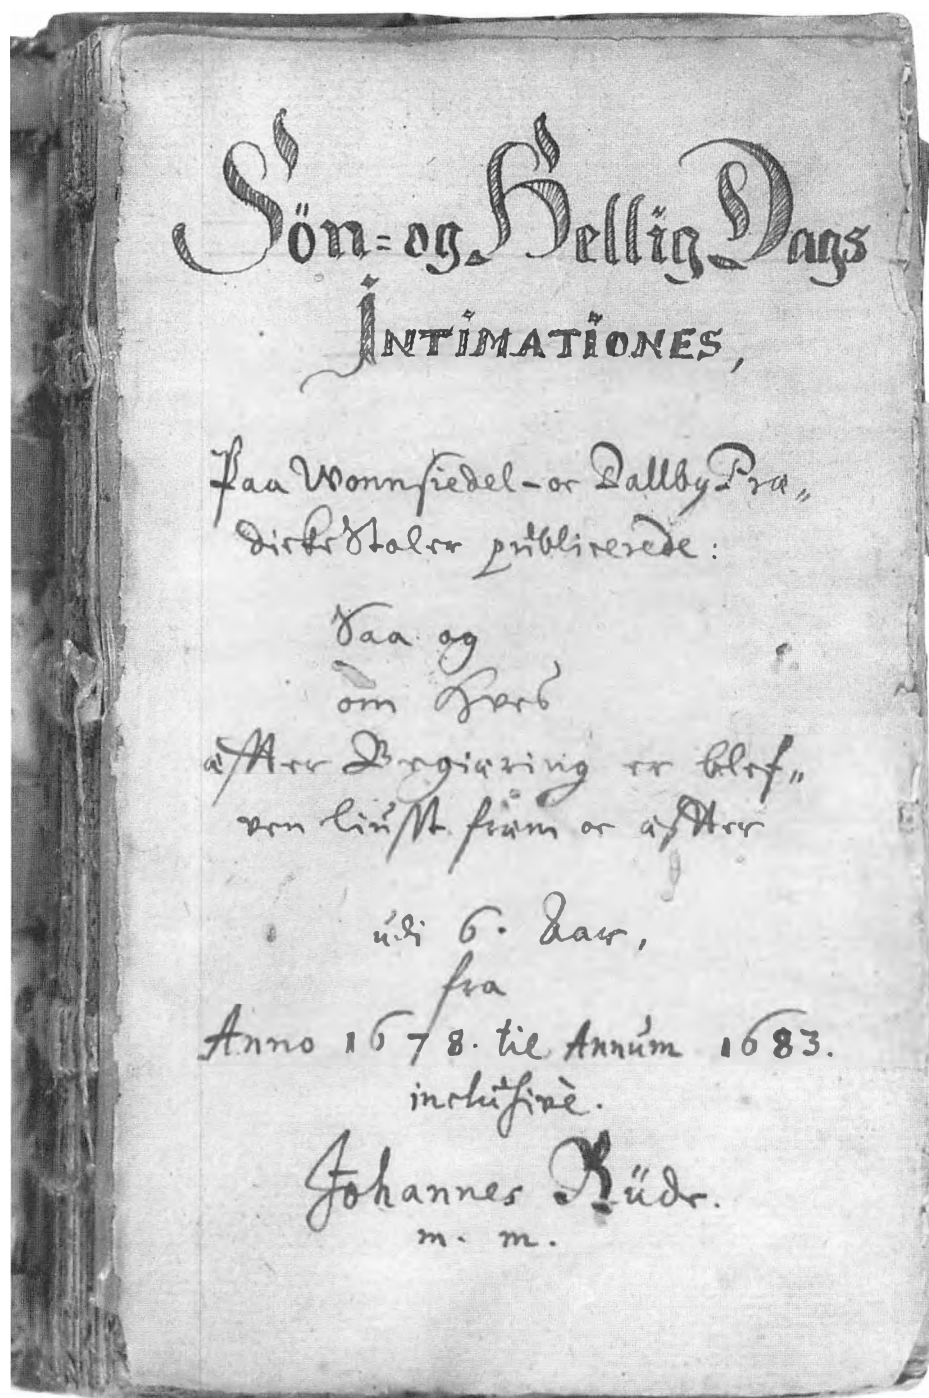 Sön=og Hellig Dags
INTIMATIONES,
Paa Wonnsiedel-oc Dallby Præ„
dicke Stoler publicerede:
Saa og
om hves
effter Begiæring er blef„
ven liust fræm oc effter
udi 6. Aar,
fra
Anno 1678. til Annum 1683.
inclusivè.
Johannes Rüde.
m. m.